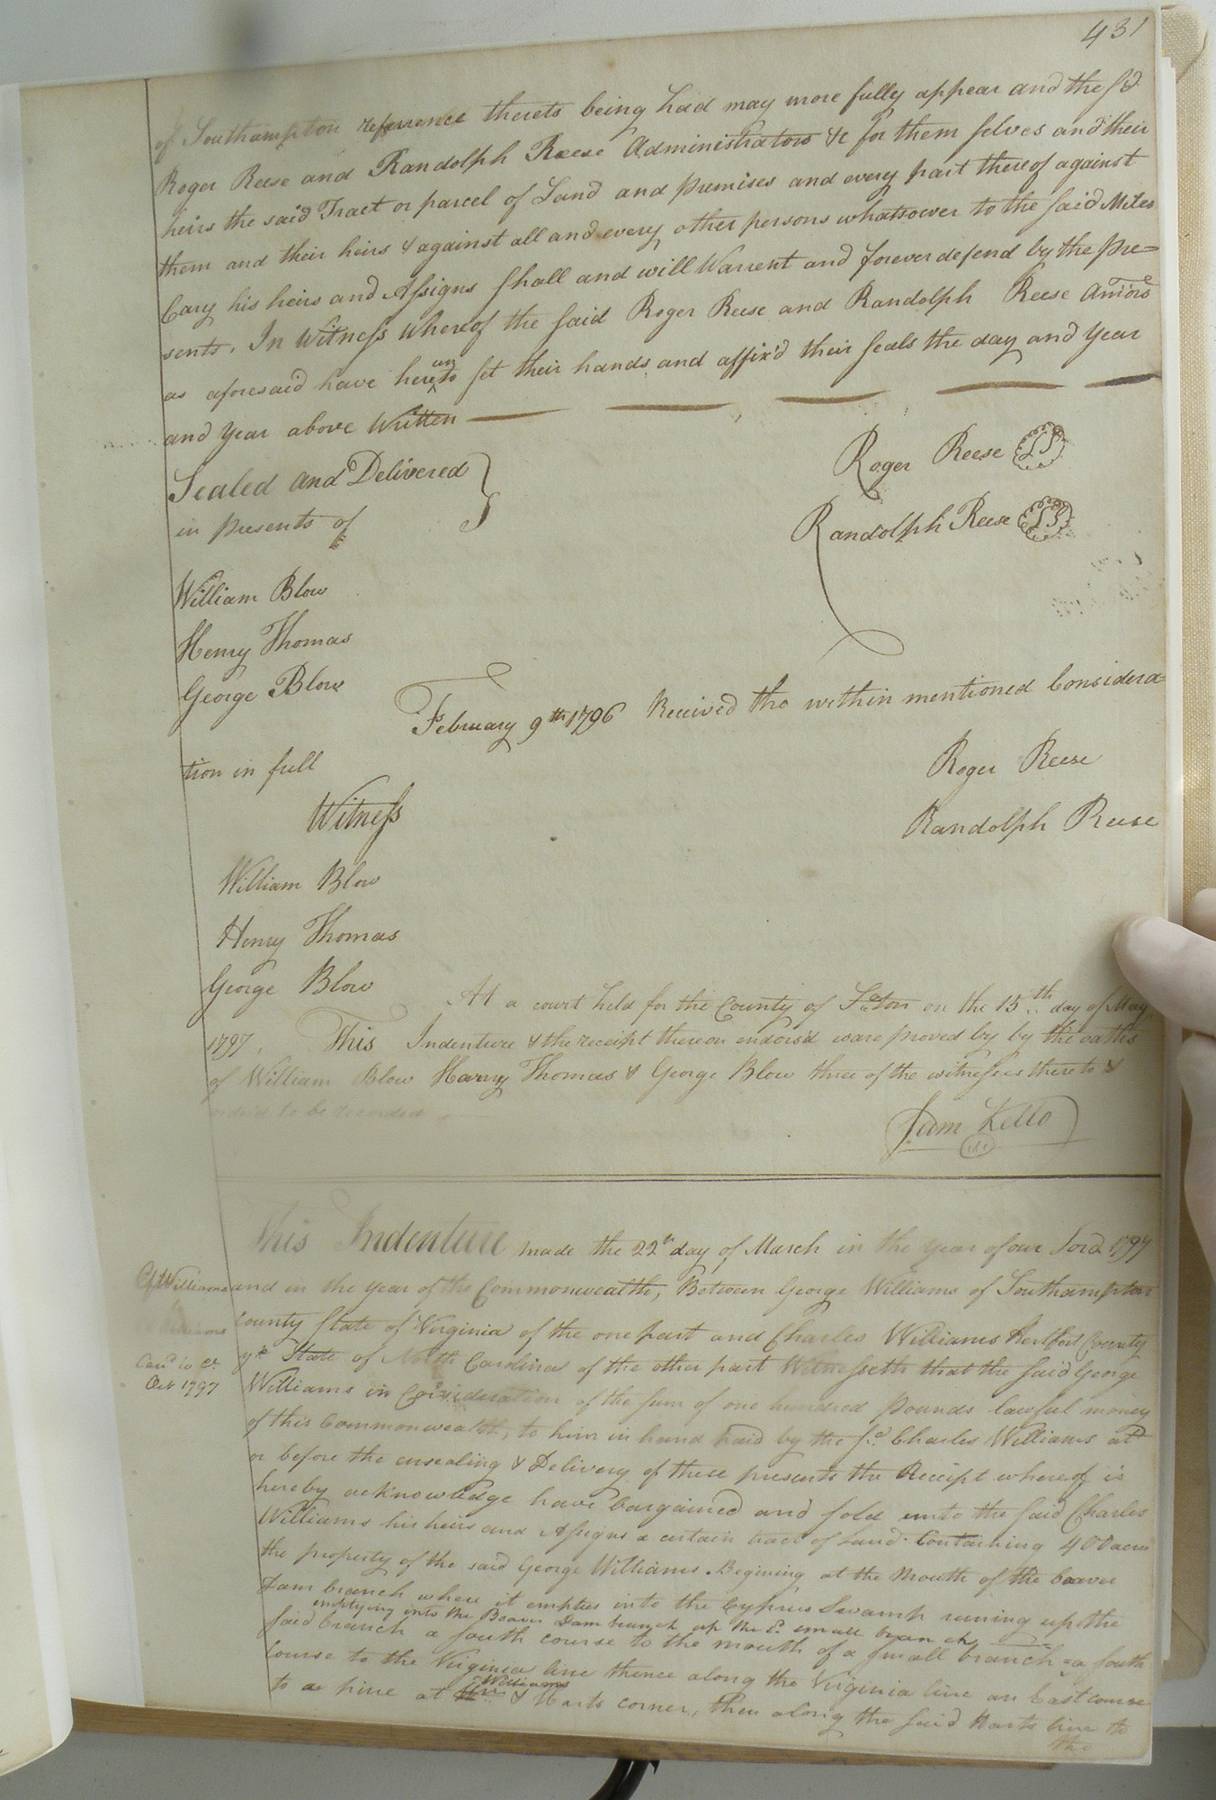 431
of Southampton referrence thereto being had may more fully appear and the sd
Roger Reese and Randolph Reese Administrators &c for them selves and their
heirs the said Tract or parcel of Land and premises and every part thereof against
them and their heirs & against all and every other persons whatsoever to the said Miles
Cary his heirs and Assigns shall and will Warrent and forever defend by the pre=
sents. In Witness whereof the said Roger Reese and Randolph Reese Admors
as aforesaid have hereunto set their hands and affix'd their seals the day and year
and year above Written
Sealed and Delivered
in presents of
Roger Reese LS
Randolph Reese LS
William Blow
Henry Thomas
George Blow
February 9th 1796 Received the within mentioned Considera=
tion in full
Roger Reese
Randolph Reese
Witness
William Blow
Henry Thomas
George Blow
At a court held for the County of Soton on the 15th day of May
1797. This Indenture & the receipt thereon endors'd ware proved by by the oaths
of William Blow Henry Thomas & George Blow three of the witnesses thereto &
ord'd to be recorded
Sam Kello
This Indenture made the 22th day of March in the year of our Lord 1797
and in the year of the Commonwealth, Between George Williams of Southampton
County State of Virginia of the one part and Charles Williams Hertford County
ye State of North Carolina of the other part Witnesseth that the said George
Williams in Consideration of the sum of one hundred pounds lawful money
of this Commonwealth, to him in hand paid by the sd Charles Williams at
or before the ensealing & Delivery of these presents the Receipt whereof is
hereby acknowledge have bargained and sold unto the said Charles
Williams his heirs and Assigns a certain tract of Land Containing 400 acres
the property of the said George Williams. Begining at the Mouth of the beaver
Dam branch where it empties into the Cyprus Swamp runing up the
emtying into the Beaver Dam branch up the sd small branch
said branch a south course to the mouth of a small branch = a south
Course to the Virginia line thence along the Virginia line an East course
to a pine at Williams & Harts corner, then along the said Harts line to
the
Williams
Oct 1797